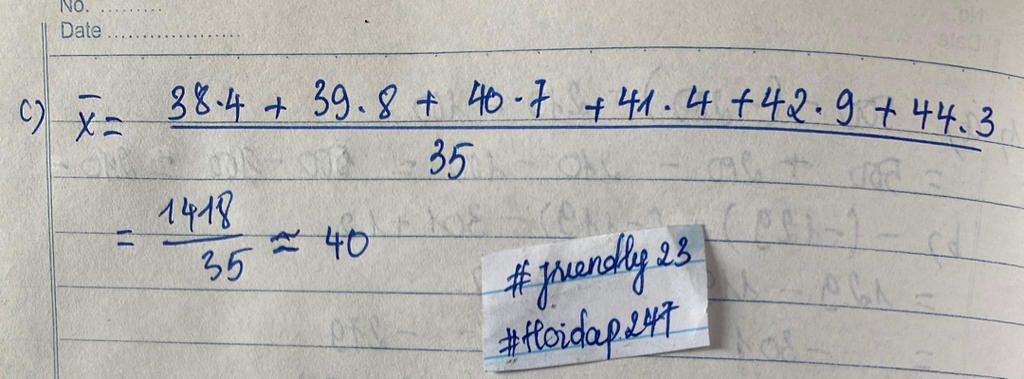 No. ..........
Date ....................
c) x̄ = 38.4 + 39.8 + 40.7 + 41.4 + 42.9 + 44.3
35
= 1418
35 ≈ 40
# friendly 23
#Hoidap247